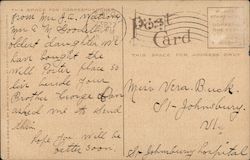 THIS SPACE FOR CORRESPONDENCE
Post Card
THIS SPACE FOR ADDRESS ONLY
From Mrs J. E.
Mrs E. M. Goodell
oldest daughter we
have bought the
Will Porter place so
live beside your
Brother George Dan
asked me to send
this.
Hope you will be
better soon.
Miss Vera Buck
St-Johnsbury.
Vt.
St-Johnsbury Hospital